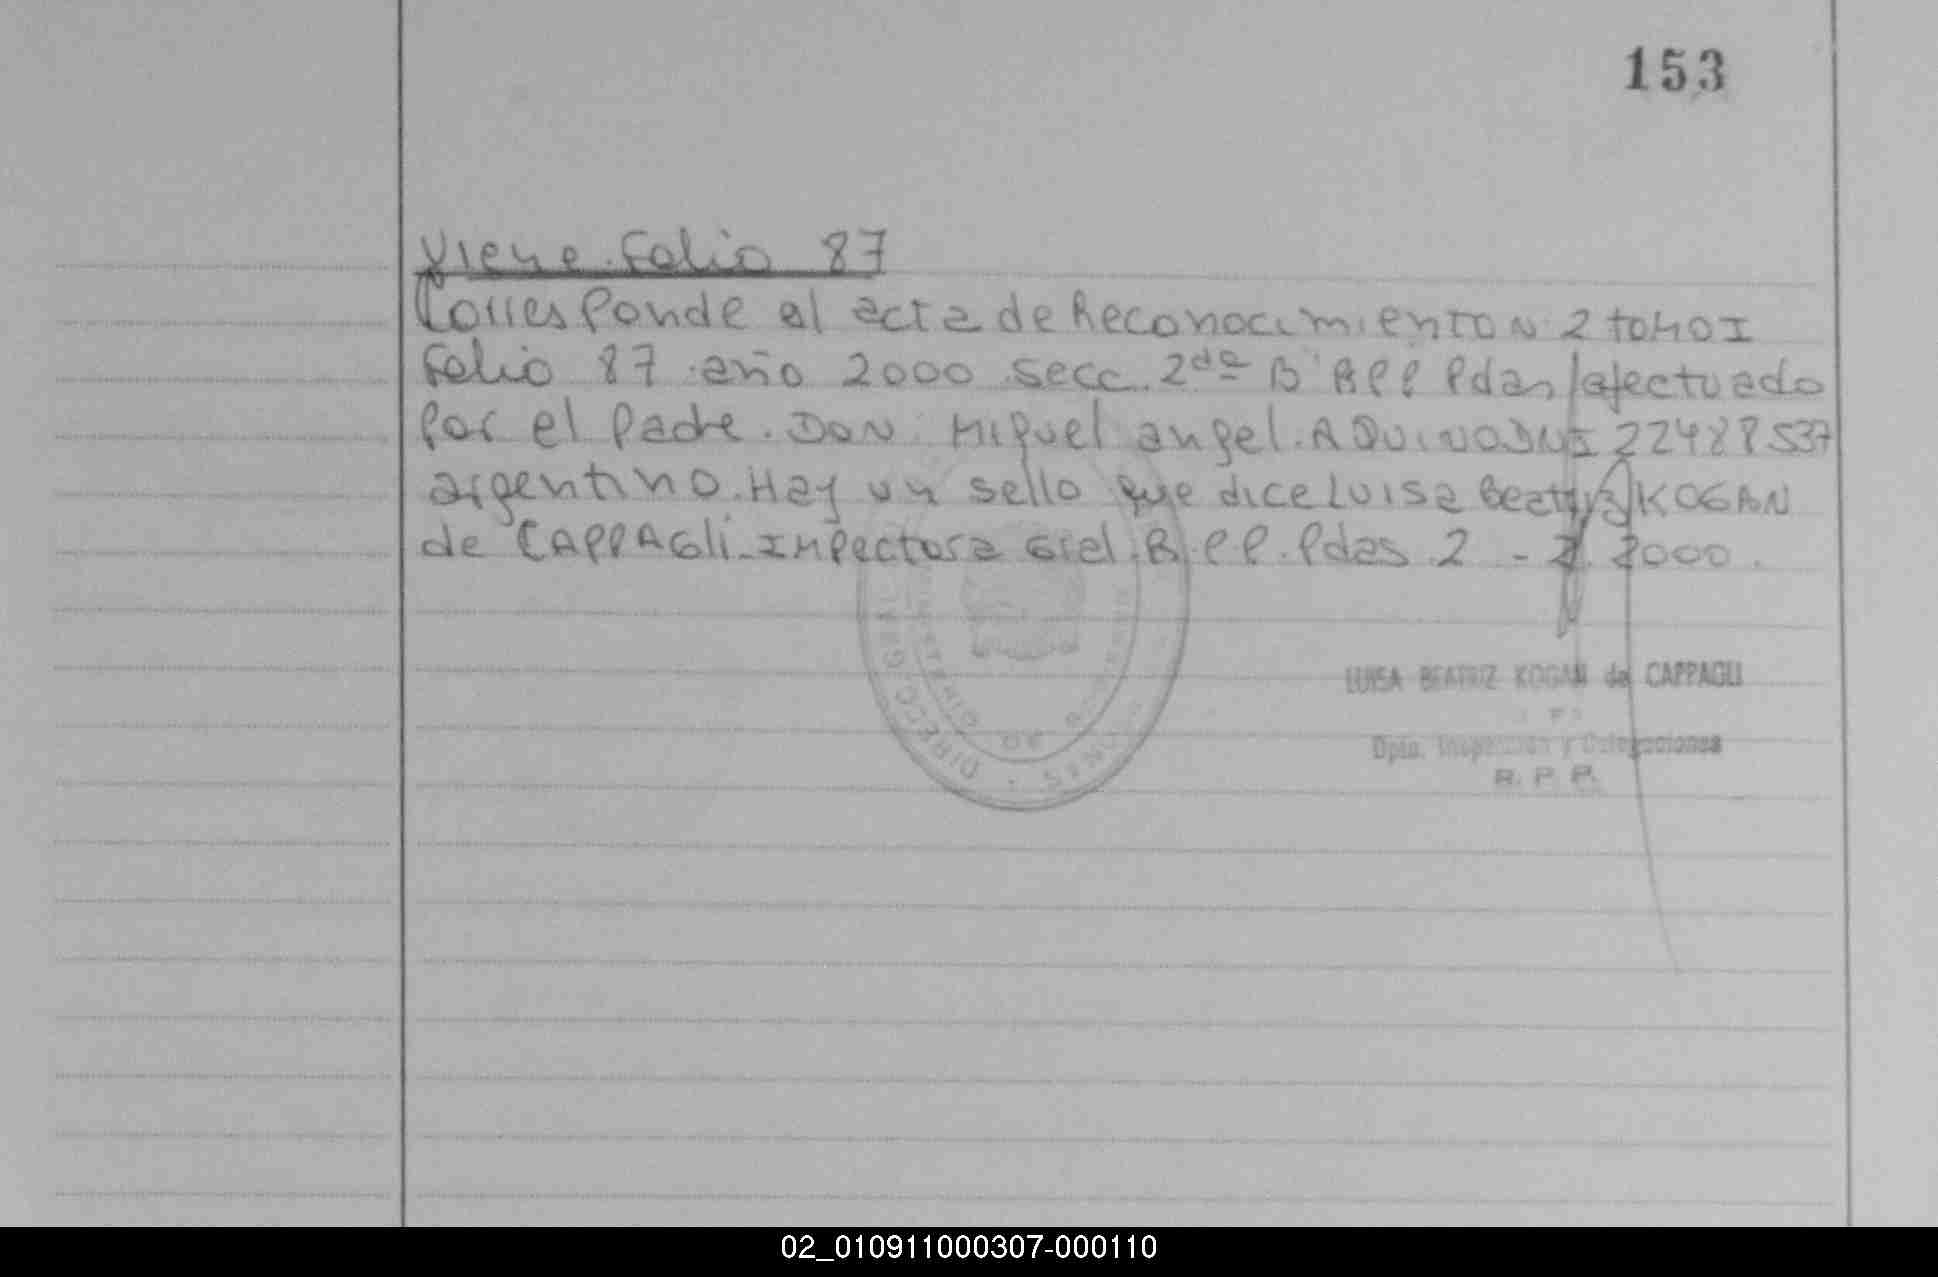 153
Viene Folio 87
Corresponde al acta de Reconocimiento N 2 tomo I
Folio 87 año 2000 secc. 2da B RPP Pdas efectuado
por el Padre. Don Miguel angel. AQUINO DNI
argentino. Hay un sello que dice Luisa Beatriz KOGAN
de CAPPAGli Inspectora Gral R.P.P. Pdas 2 - 2000.
LUISA BEATRIZ KOGAN de CAPPAGLI
Dpto. Inspección y Delegaciones
R. P. P.
DIRECC. GRAL
MINISTERIO DE
02_010911000307-000110